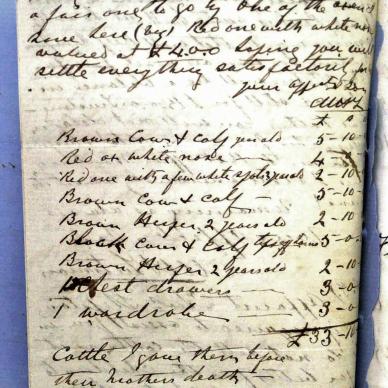 a fair one to go by one of the oxen is
here (viz) Red one with white nose
valued at £4.0.0 hoping you will
settle everything satisfactorily for
your affect Son
£ s
Brown Cow & calf year old 5-10
Red ox white nose — 4
Red one with a few white spots year old 2-10
Brown Cow & calf — 5-10
Brown Heifer 2 years old 2-10
Black Cow & Calf 5-0
Brown Heifer 2 years old 2-10
1 Chest drawers — 3-0
1 wardrobe — 3-0
£33-10
Cattle I gave them before
their mothers death —